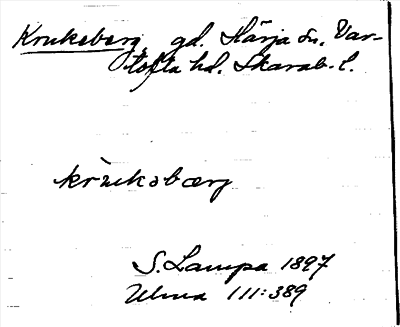 Krukeberg, gd. Härja sn. Var-
tofta hd. Skarab. l.
krùksbærg
S. Lampa 1897
Ulma 111:389